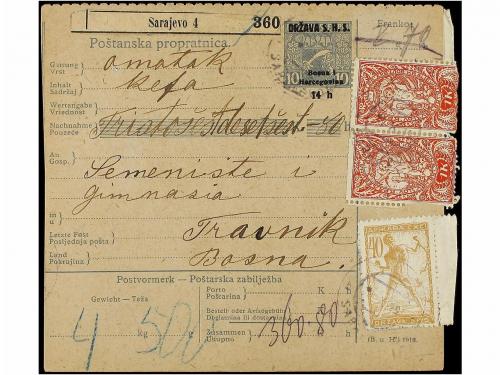 Sarajevo 4 360
DRŽAVA S. H. S.
10 10
Bosna i
Hercegovina
14 h
Franko
Poštanska propratnica.
Gattung
Vrst
omotak
Inhalt
Sadržaj
Wertangabe
Vrijednost
Nachnahme
Pouzeće
80
An
Gosp.
Semenište i
gimnasia
in
u
Travnik
Letzte Post
Posljednja pošta
Land
Pokrajina
Bosna.
Postvermerk – Poštarska zabilježba
Gewicht – Teža
Porto
Poštarina
K
Bestell- oder Avisogebühr
Zusammen
Ukupno
360.80
4 kg 500
(B. u. H.) 1918.